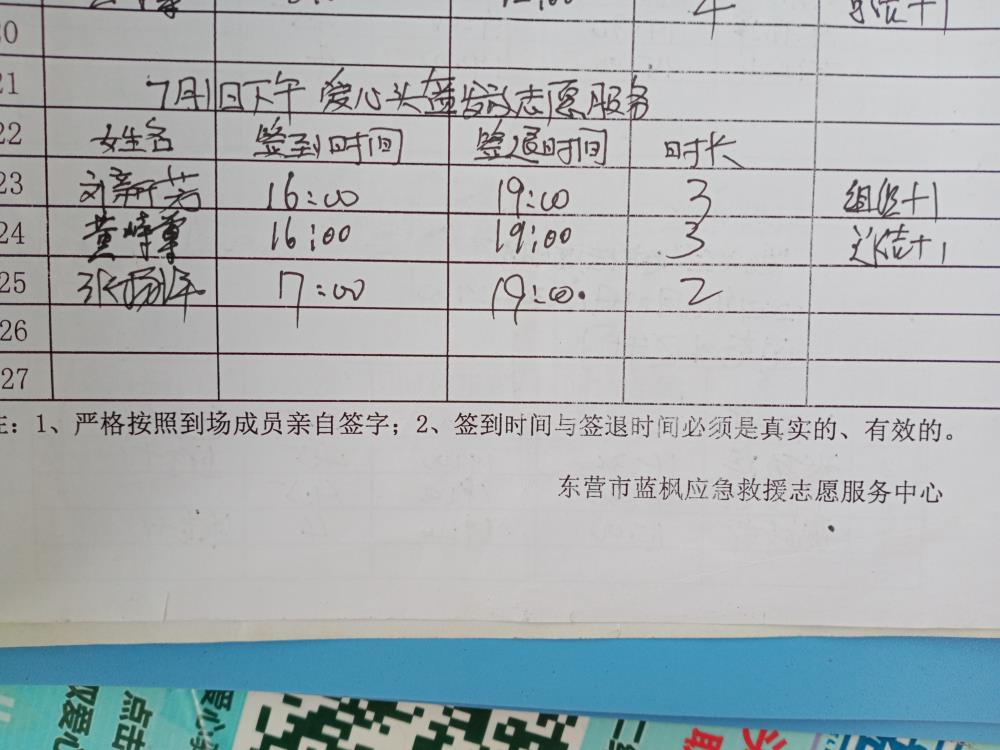 12:00 4 总结+1
20
21 7月1日下午 爱心头盔发放志愿服务
22 姓名 签到时间 签退时间 时长
23 刘新芳 16:00 19:00 3 组织+1
24 黄 16:00 19:00 3 总结+1
25 张 17:00 19:00. 2
26
27
注：1、严格按照到场成员亲自签字；2、签到时间与签退时间必须是真实的、有效的。
东营市蓝枫应急救援志愿服务中心
爱心
点击
爱心